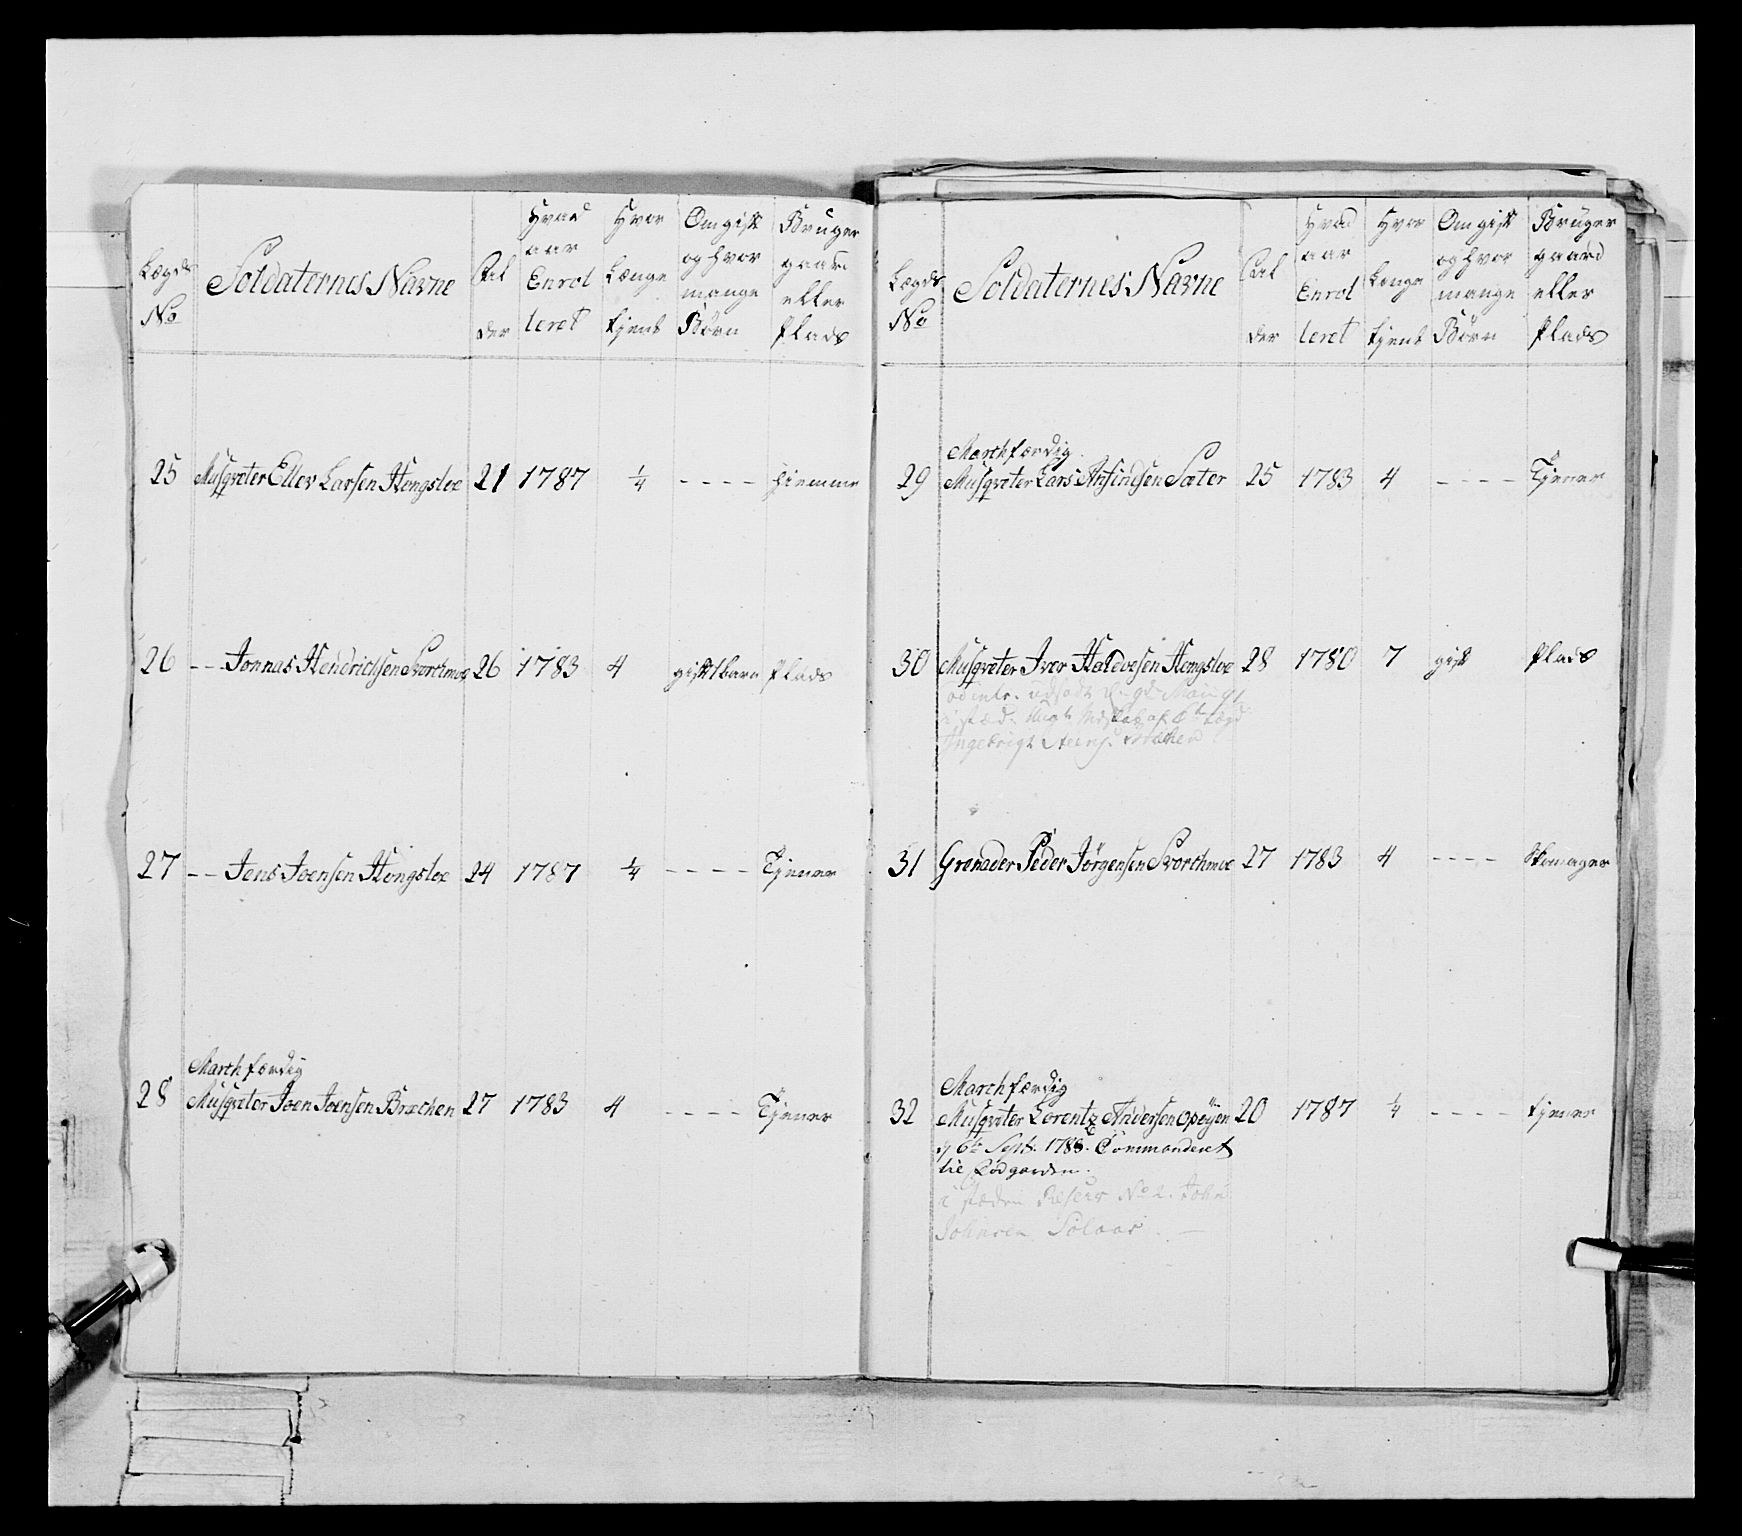 Lægds No | Soldaternes Navne | Al der | Hvad aar Enrol leret | Hvor Længe tjent | Om gift og hvor mange Børn | Bruger gaard eller Plads
25 Musqveter Ellev Larsen Hongsloe 21 1787 ¼ - - - - hiemme
26 - - Jonnas Hendrichsen Storchmoe 26 1783 4 gift 1 barn Plads
27 - - Jens Joensen Hongsloe 24 1787 ¼ - - - - Tjener
Marchfærdig
28 Musqveter Joen Joensen Bræchen 27 1783 4 - - - - Tjener
Lægds No | Soldaternes Navne | Al der | Hvad aar Enrol leret | Hvor Længe tjent | Om gift og hvor mange Børn | Bruger gaard eller Plads
Marchfærdig
29 Musqveter Lars Arsindsen Sæter 25 1783 4 - - - - Tjener
30 Musqveter Iver Haldvesen Hongsloe 28 1780 7 gift Plads
i stæd.
Ingebrigt
31 Grenader Peder Jørgensen Storchmoe 27 1783 4 - - - - Skomager
Marchfærdig
32 Musqveter Lorentz Andersen Opøyen 20 1787 ¼ - - - - tjener
6te Sept. 1788. Commanderet
til Lodgarden.
i stæden Reserv No 2. John
Johnsen Solaar. —